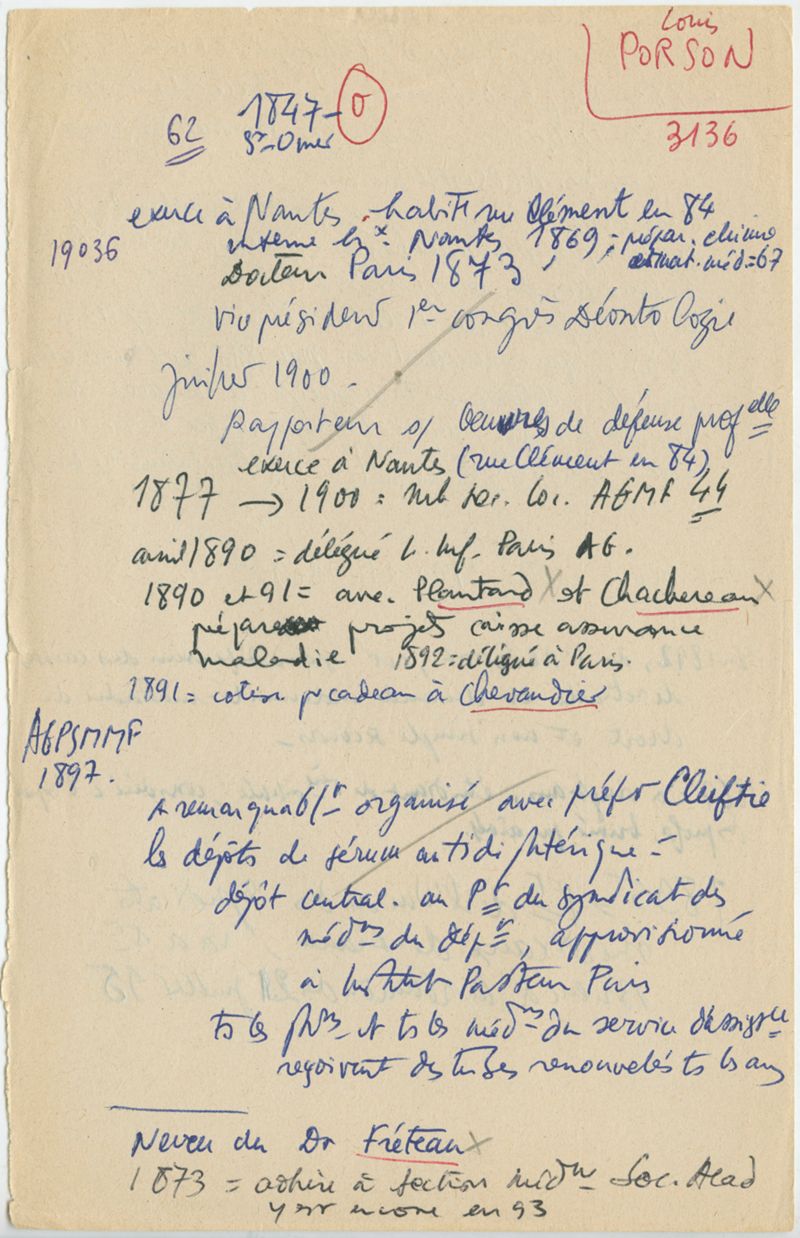 Louis
PORSON
3136
1847-0
62
St-Omer
exerce à Nantes. habite rue Clément en 84
19036
interne hx Nantes 1869, prépar. chimie
et mat. méd = 67
Docteur Paris 1873
vice président 1er congrès Déontologie
juillet 1900.
Rapporteur s/ Oeuvres de défense profelle
exerce à Nantes (rue Clément en 84)
1877 → 1900 = mb soc. loc. AGMF 44
avril 1890 = délégué Paris AG.
1890 et 91 = avec Plantard x et Chachereau x
prépare projets caisse assurance
maladie 1892 = délégué à Paris.
1891 = cotise pr cadeau à Chevandier
AGPSMMF
1897.
A remarquablt organisé avec préfet Cleiftie
les dépôts de sérum antidiphtérique =
dépôt central. au Pt du syndicat des
médns du Dépt, approvisionné
à Institut Pasteur Paris
ts les phns et ts les médns du service d'assistce
reçoivent des tubes renouvelés ts les ans
Neveu du Dr Fréteau x
1873 = adhère à section médne Soc. Acad
y est encore en 93